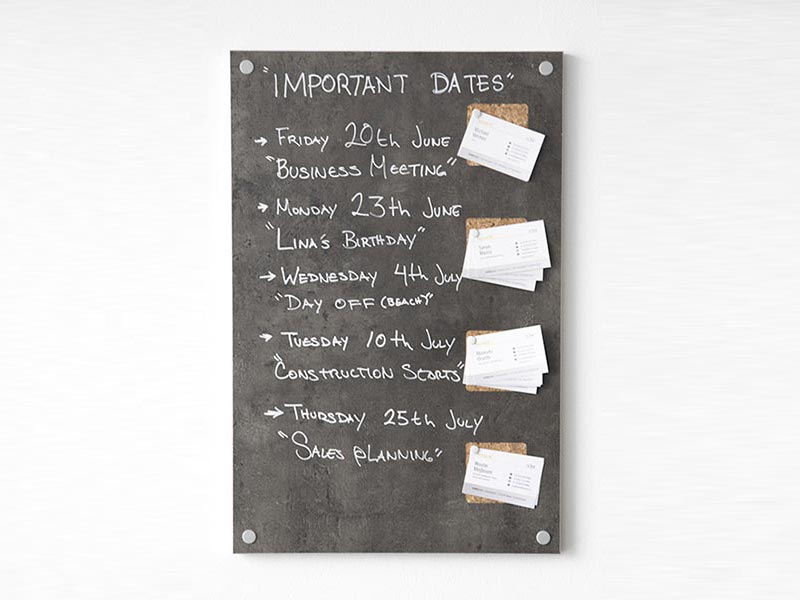 "IMPORTANT DATES"
→ FRIDAY 20th JUNE
"BUSINESS MEETING"
→ MONDAY 23th JUNE
"LINA'S BIRTHDAY"
→ WEDNESDAY 4th JULY
"DAY OFF (BEACH)"
→ TUESDAY 10th JULY
"CONSTRUCTION STARTS"
→ THURSDAY 25th JULY
"SALES PLANNING"
Michael